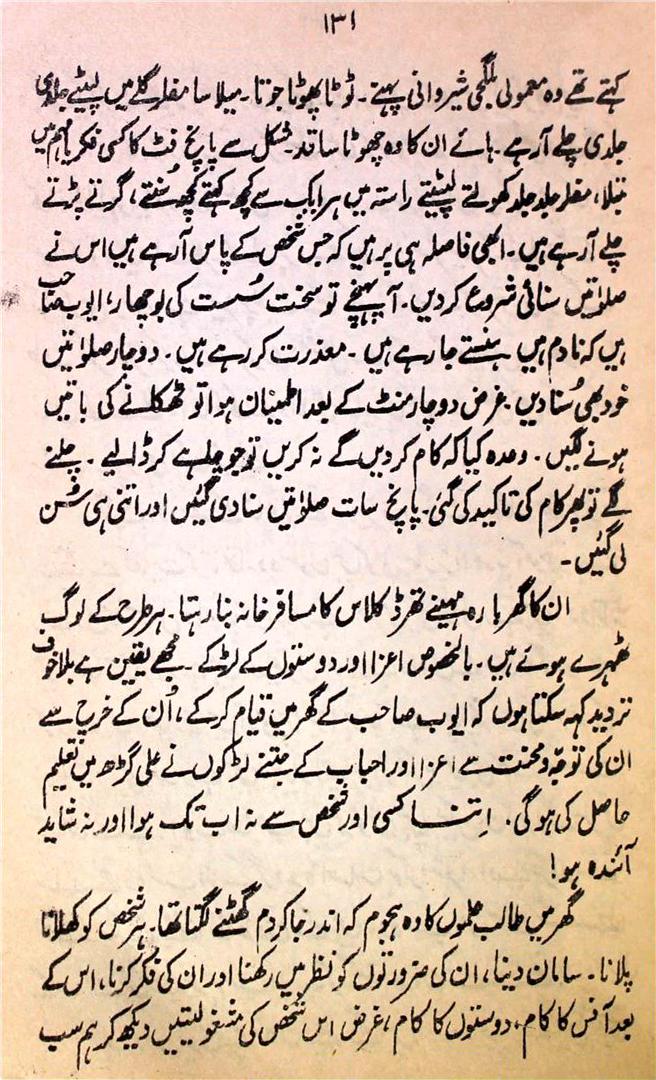 ۱۳۱
کہتے تھے وہ معمولی ملگجی شیروانی پہنے۔ ٹوٹا پھوٹا جوتا۔ میلا سا مفلر گلے میں لپیٹے جلدی
جلدی چلے آرہے۔ ہائے ان کا وہ چھوٹا سا قد۔ مشکل سے پانچ فٹ کا کسی فکر یا مہم میں
مبتلا، مفلر جلد جلد کھولتے لپیٹتے راستہ میں ہر ایک سے کچھ کہتے کچھ سُنتے، گرتے پڑتے
چلے آرہے ہیں۔ ابھی فاصلہ ہی پر ہیں کہ جس شخص کے پاس آرہے ہیں اس نے
صلوٰتیں سنائی شروع کردیں۔ آپہنچے تو سخت سُست کی بوچھار، ایوب صاحب
ہیں کہ نادم ہیں ہنستے جارہے ہیں۔ معذرت کررہے ہیں۔ دوچار صلوٰتیں
خود بھی سُنادیں۔ غرض دوچار منٹ کے بعد اطمینان ہوا تو ٹھکانے کی باتیں
ہونے لگیں۔ وعدہ کیا کہ کام کردیں گے نہ کریں تو جو چاہے کر ڈالیے۔ چلنے
لگے تو پھر کام کی تاکید کی گئی۔ پانچ سات صلوٰتیں سنادی گئیں اور اتنی ہی سُن
لی گئیں۔
ان کا گھر بارہ مہینے تھرڈ کلاس کا مسافر خانہ بنا رہتا۔ ہر طرح کے لوگ
ٹھہرے ہوئے ہیں۔ بالخصوص اعزا اور دوستوں کے لڑکے۔ مجھے یقین ہے بلاخوف
تردید کہہ سکتا ہوں کہ ایوب صاحب کے گھر میں قیام کرکے، اُن کے خرچ سے
ان کی توجّہ و محنت سے اعزا اور احباب کے جتنے لڑکوں نے علی گڑھ میں تعلیم
حاصل کی ہوگی۔ اِتنا کسی اور شخص سے نہ اب تک ہوا اور نہ شاید
آئندہ ہو!
گھر میں طالب علموں کا وہ ہجوم کہ اندر جاکر دم گھٹنے لگتا تھا۔ ہر شخص کو کھلانا
پلانا۔ سامان دینا، ان کی ضرورتوں کو نظر میں رکھنا اور ان کی فکر کرنا، اس کے
بعد آفس کا کام، دوستوں کا کام، غرض اس شخص کی مشغولیتیں دیکھ کر ہم سب